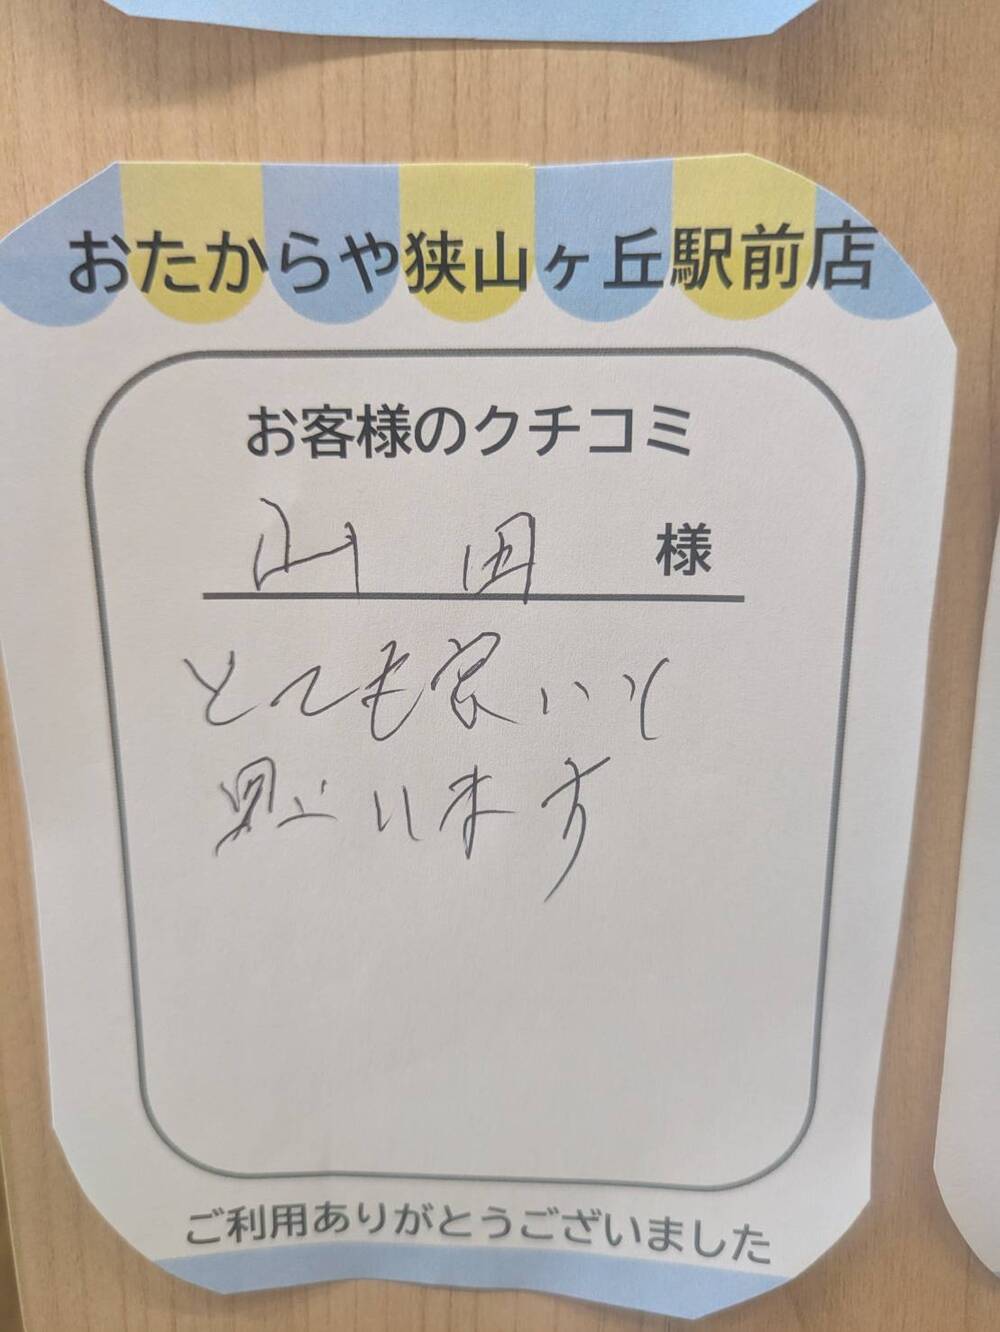 おたからや狭山ヶ丘駅前店
お客様のクチコミ
山田 様
とても良いと
思います
ご利用ありがとうございました